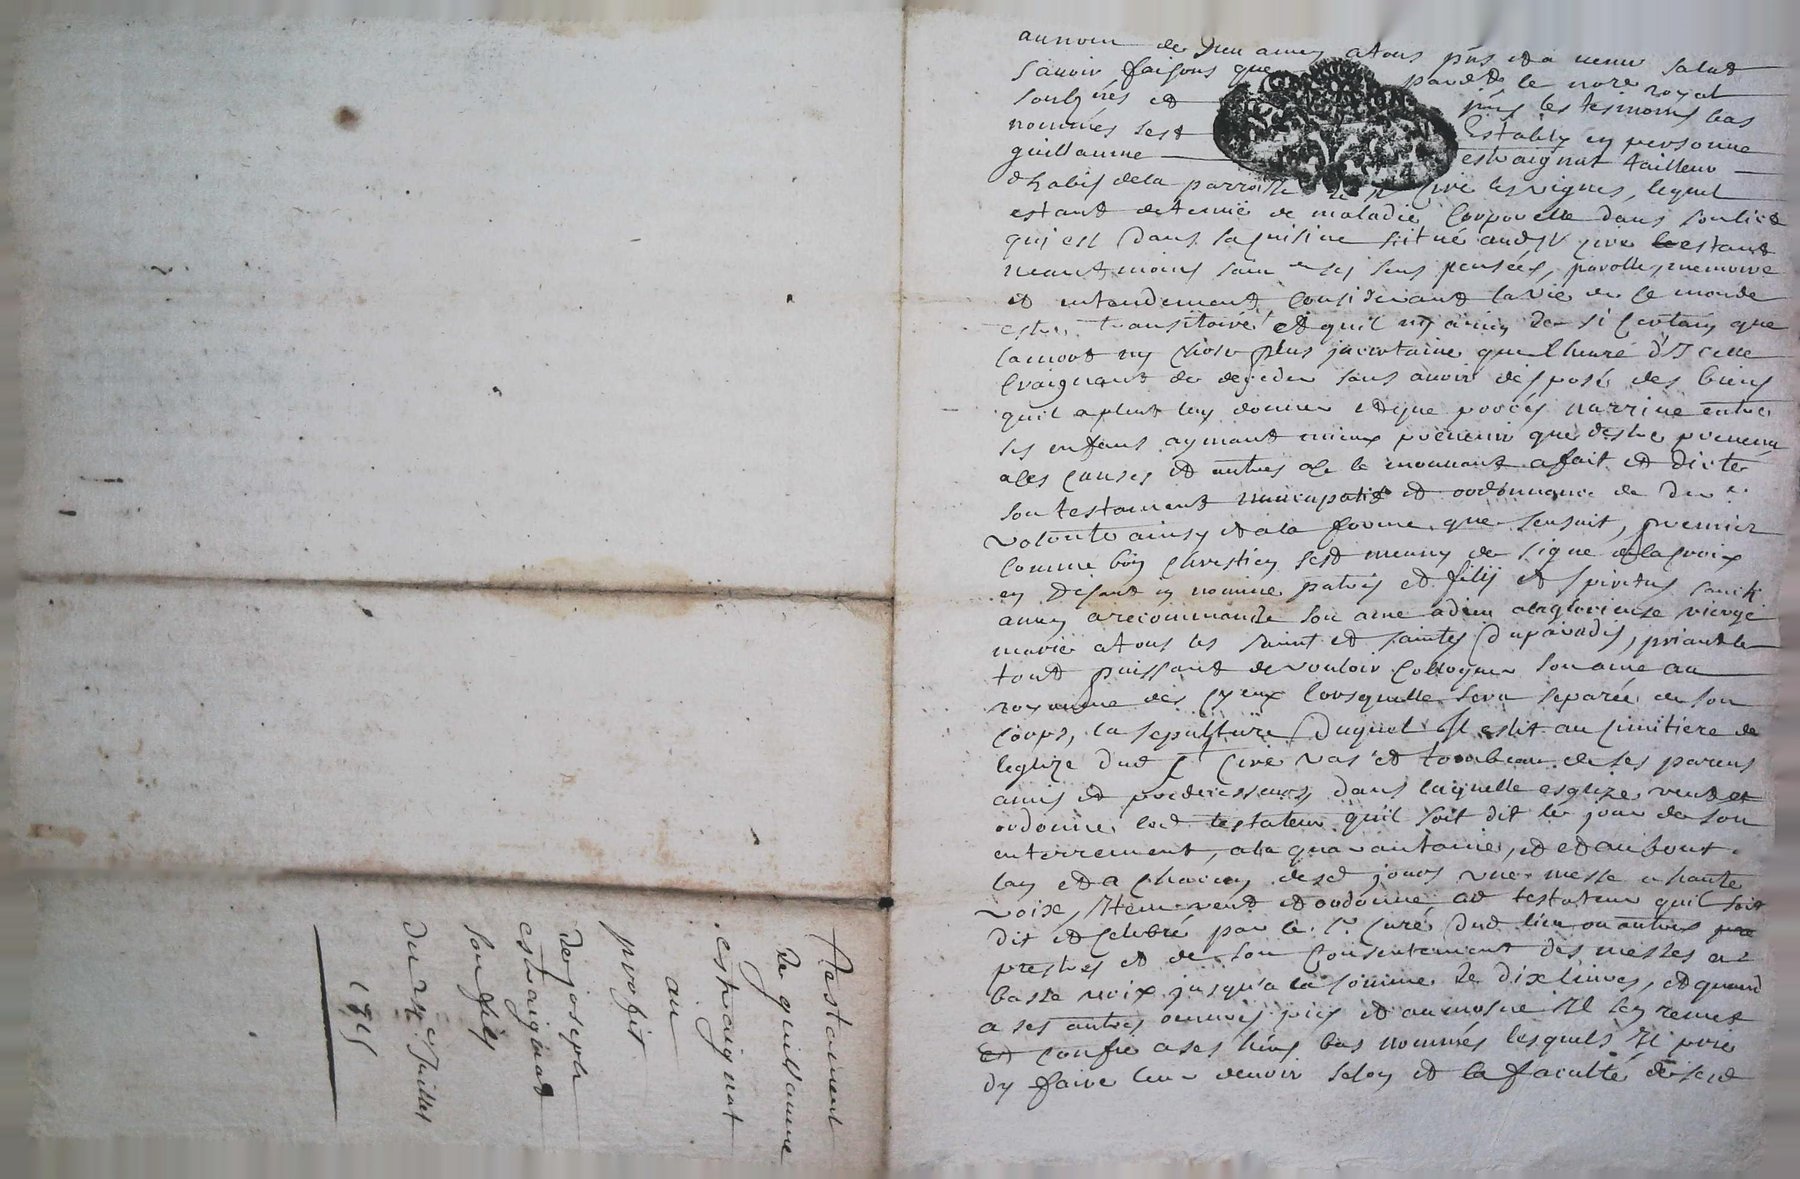 au nom de Dieu amen atous pns et a venir salut
Savoir faisons que pardt le nore royal
soubznes et pns les tesmoins bas
nommés sest Estably en personne
guillaume estraignat tailleur
dhabis dela parroisse de st Cire les vignes, lequel
estant detenue de maladie Corporelle dans son lict
qui est dans sa cuisine scitué aud st cire estant
neantmoins sain en ses sens pensées, parolle, memoire
et entandement Considerant la vie de Ce monde
estre transitoire et quil ny a rien de si Certain que
la mort ny Chose plus jncertaine que lheure d'Icelle
Craignant de deceder sans avoir disposé des biens
quil a pleut luy donner et que procés narrive entre
ses enfans aymant mieux prevenir que destre prevenu
a les causes et autres a le mouvant a fait et dicté
son testament nuncupatif et ordonnance de der.e
volonte ainsy et a la forme que sensuit, premier
Comme bon Chrestien sest muny de signe de la croix
en disant in nomine patris et filij et spiritus sancti
amen a recommande son ame a dieu a la glorieuse vierge
marie a tous les saint et saintes du paradis, priant le
tout puissant de vouloir Colloquer son ame au
royaume des Cyeux lorsquelle sera separée de son
Corps, la sepulture duquel Il eslit au cimitiere de
leglize dud st Cire vas et tombeau de ses parens
amis et predecesseurs, dans laquelle esglize veut et
ordonne led testateur quil soit dit le jour de son
enterrement, a la quarantaine, et et au bout
lan et a Chacun desd jours une messe a haute
voix, Item veut et ordonne led testateur quil soit
dit et Celebré par le sr Curé dud lieu ou autres
prestres et de son Consentement des messes a
basse voix jusqu'a la somme de dix livres, et quand
a ses autres oeuvres pies et aumosne Il sen remet
et confie a ses heirs bas nommés lesquels Il prie
dy faire leur devoir selon et la faculté de sesd
Testament
de guillaume
estraignat
au
profit
de joseph
estraignat
son fils
du 29e Juillet
1715